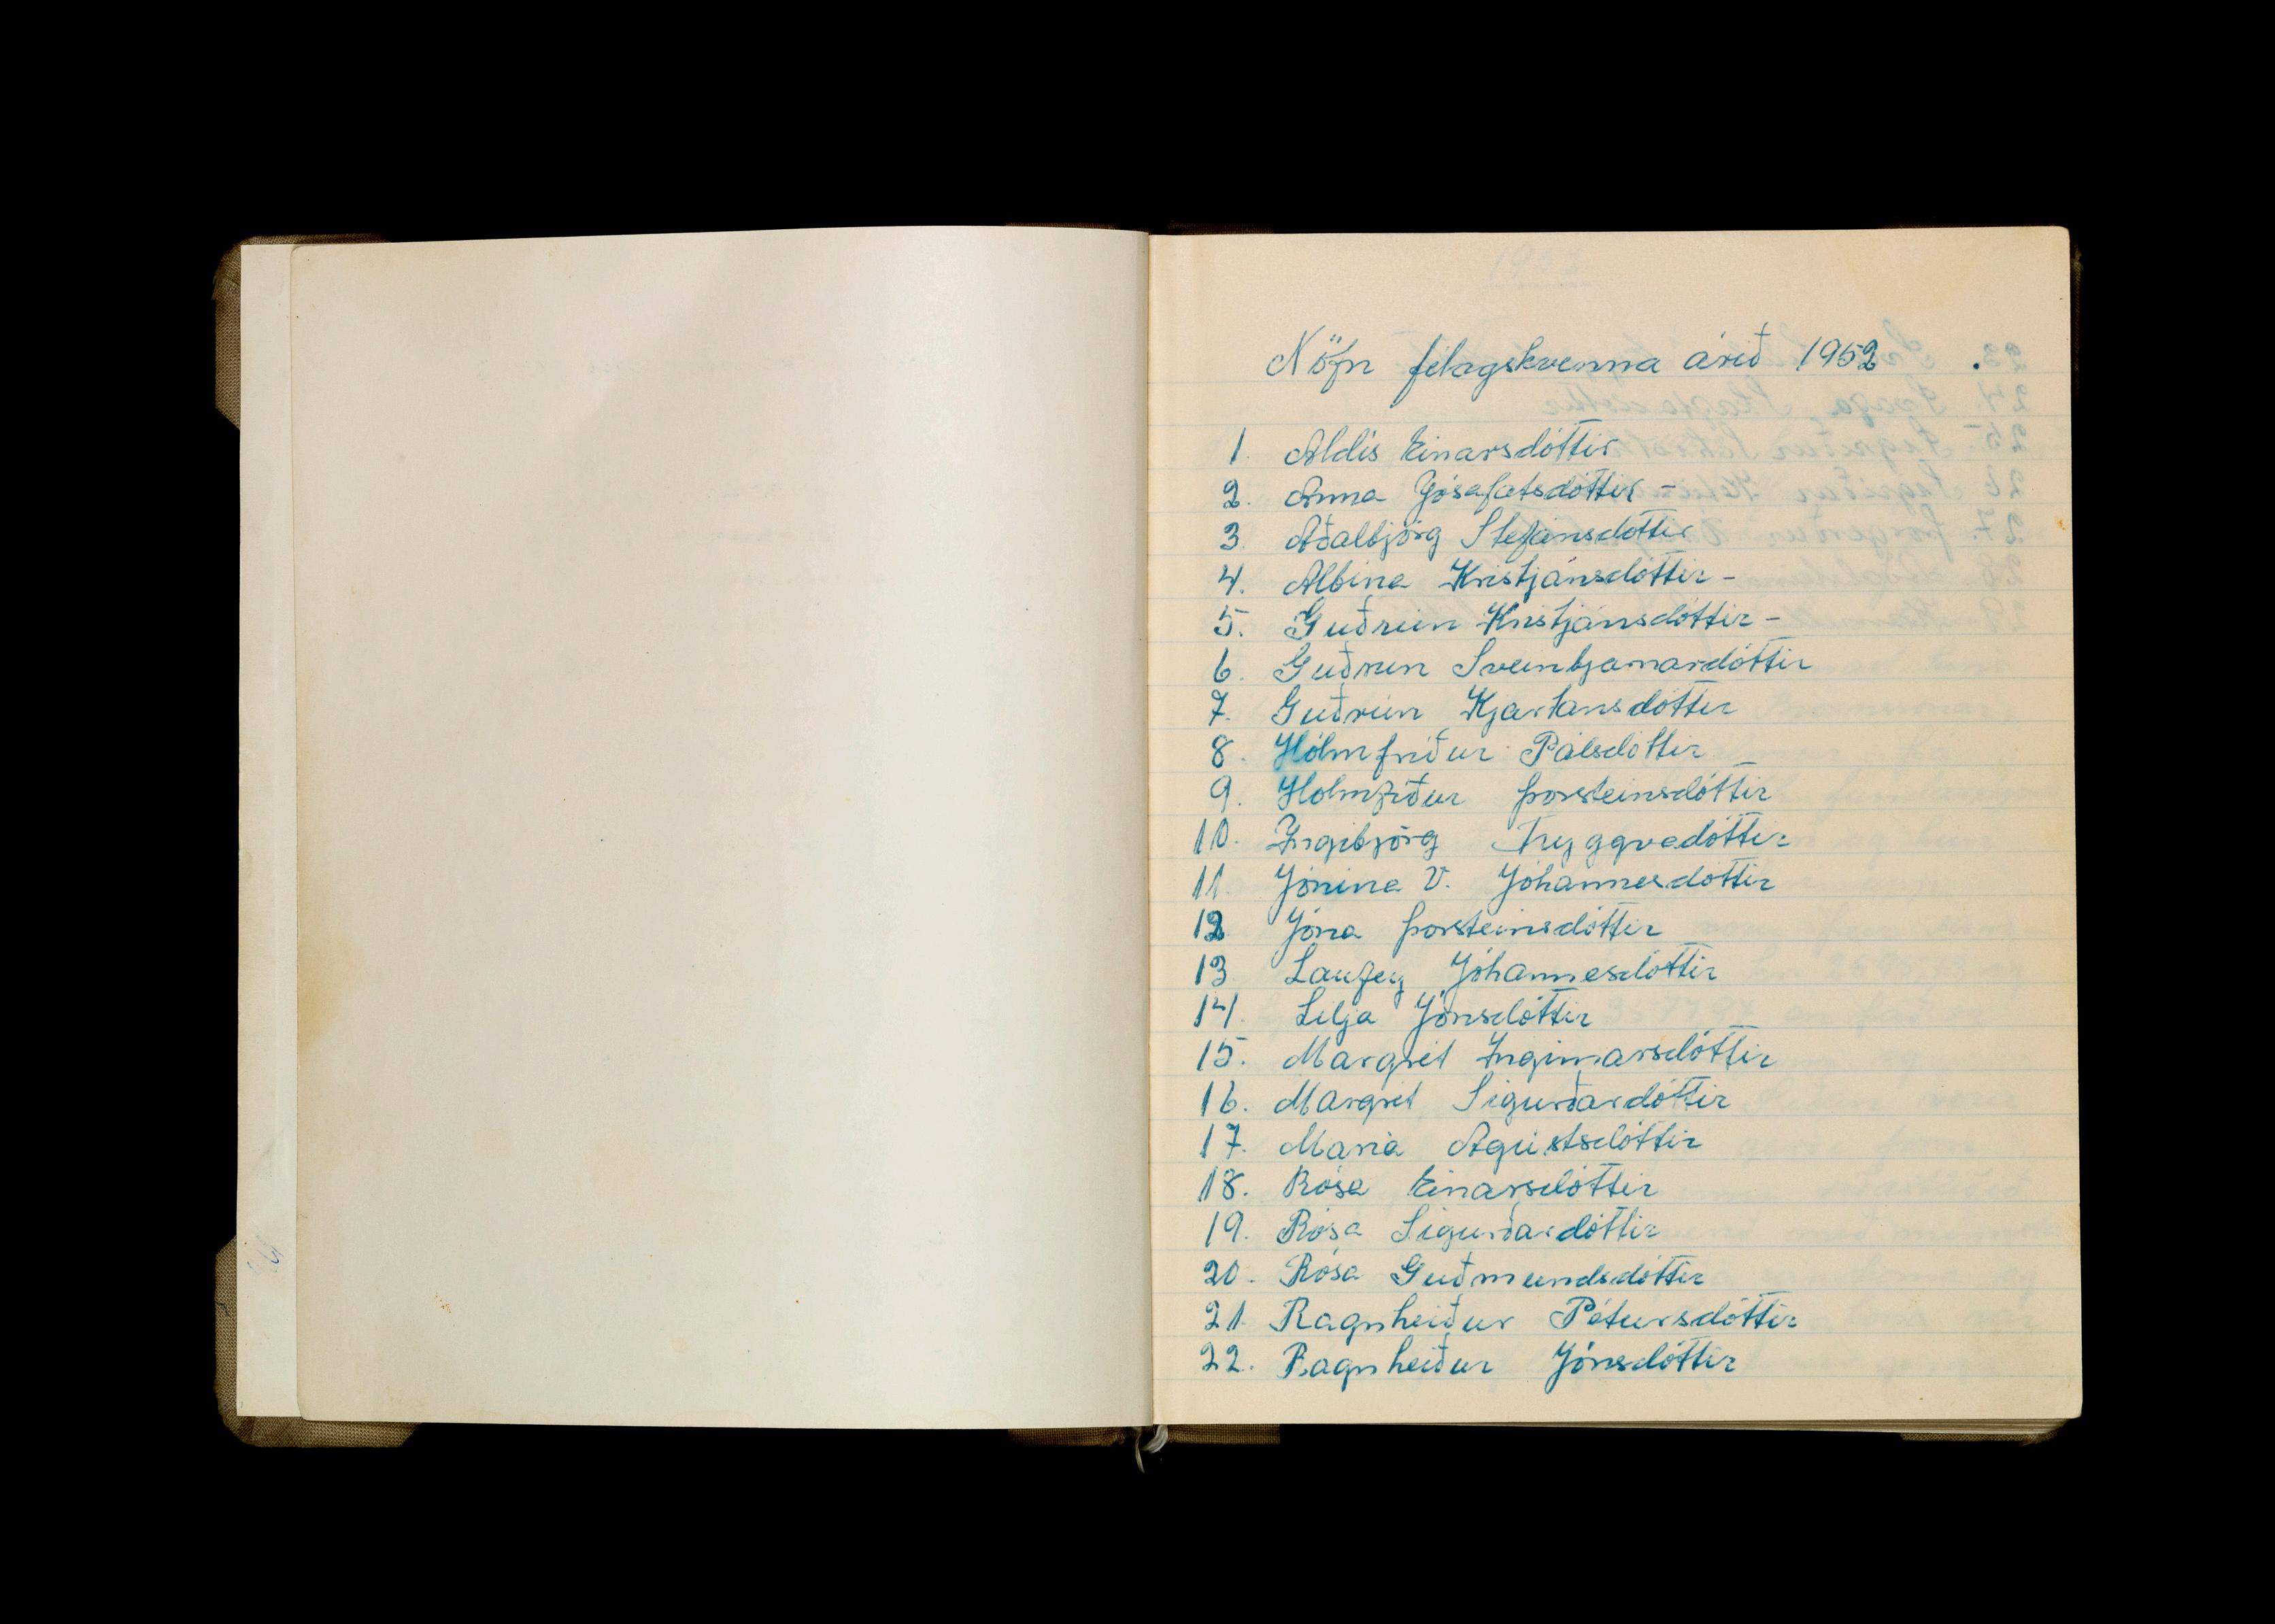 Nöfn félagskvenna árið 1952
1. Aldís Einarsdóttir
2. Anna Jósafatsdóttir -
3. Aðalbjörg Stefánsdóttir
4. Albína Kristjánsdóttir -
5. Guðrún Kristjánsdóttir -
6. Guðrún Sveinbjarnardóttir
7. Guðrún Kjartansdóttir
8. Hólmfríður Pálsdóttir
9. Hólmfríður Þorsteinsdóttir
10. Ingibjörg Tryggvadóttir
11. Jónína V. Jóhannesdóttir
12 Jóna Þorsteinsdóttir
13 Laufey Jóhannesdóttir
14. Lilja Jónsdóttir
15. Margrét Ingimarsdóttir
16. Margrét Sigurðardóttir
17. María Ágústsdóttir
18. Rósa Einarsdóttir
19. Rósa Sigurðardóttir
20. Rósa Guðmundsdóttir
21. Ragnheiður Pétursdóttir
22. Ragnheiður Jónsdóttir